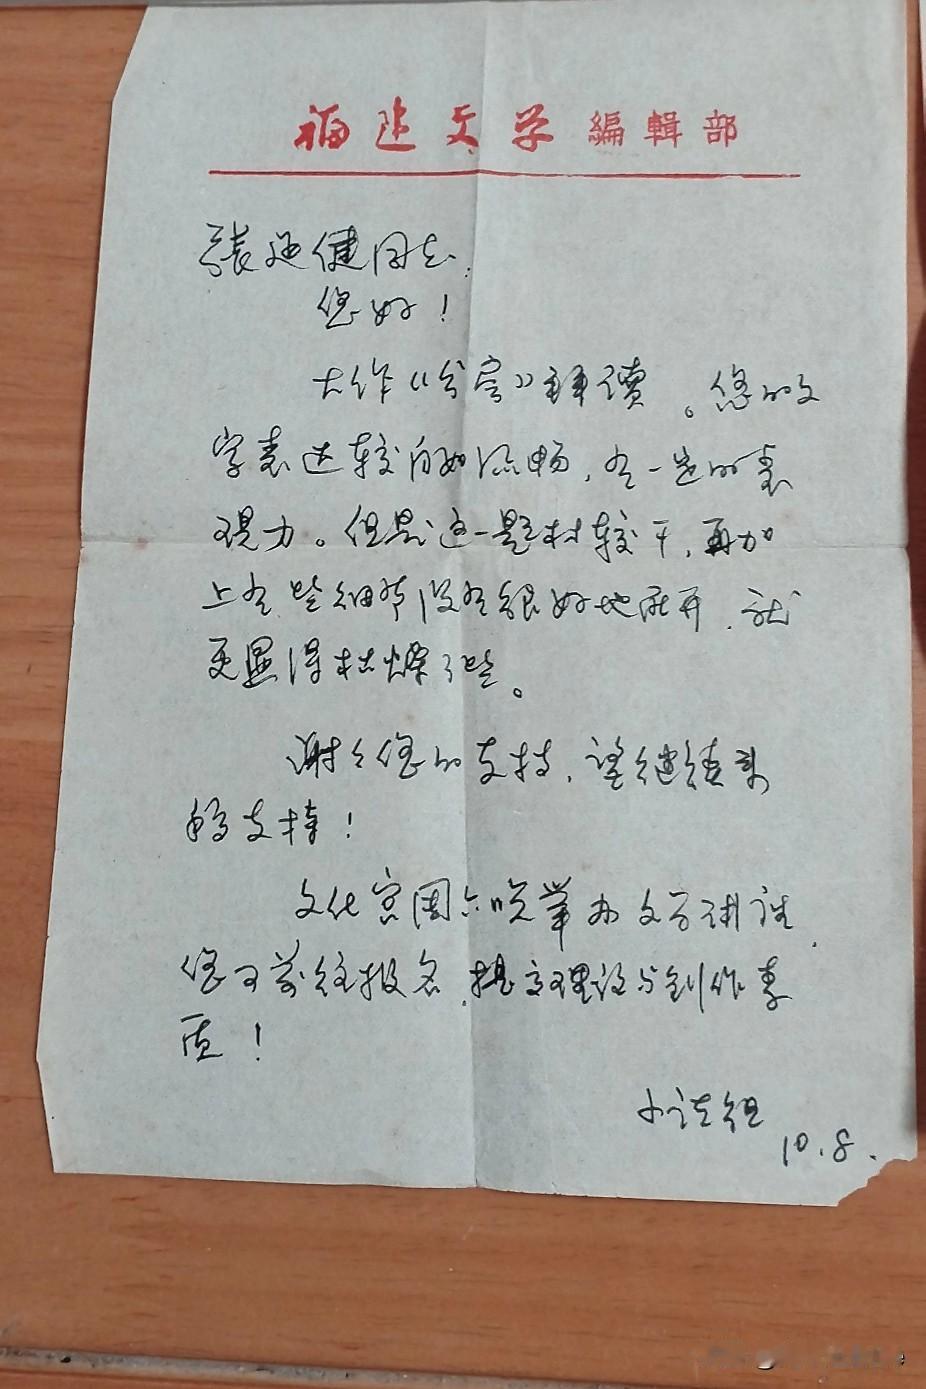 福建文学編輯部
張延健同志:
您好!
大作《分房》拜讀。您的文
字表达较自如流畅,有一定的表
现力。但是这一题材较干,再加
上有些细节没有很好地展开,就
更显得枯燥了些。
谢谢您的支持,望继续来
稿支持!
文化宫周六晚举办文学讲座,
您可前往报名,提高理论与创作素
质!
小说组
10.8.